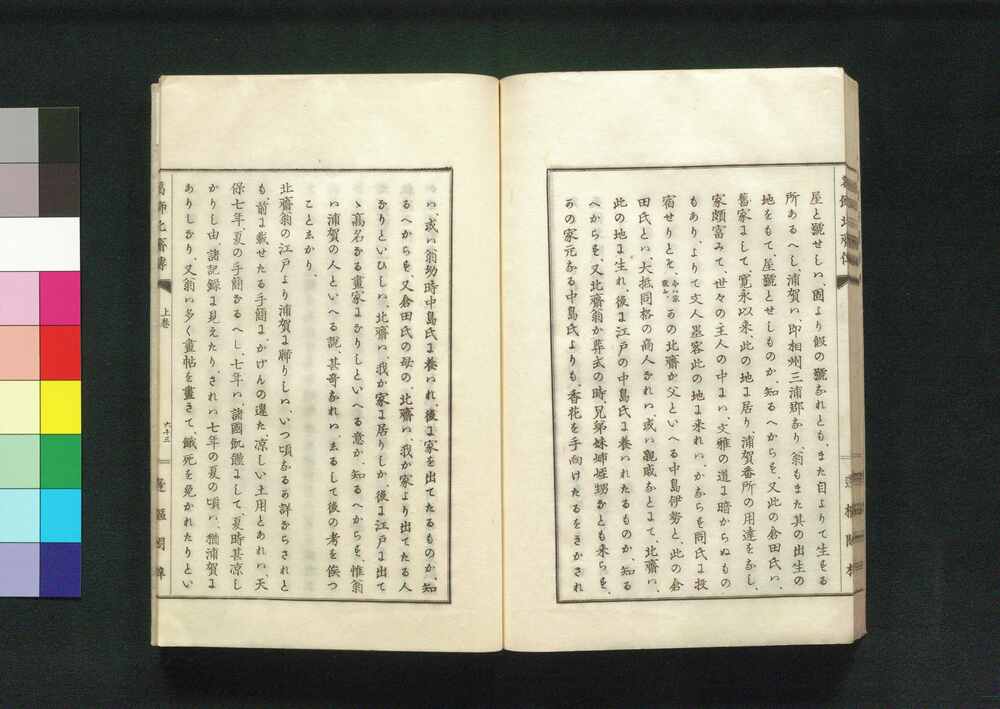 屋と號せしハ、固より假の號なれとも、また自よりて生をる
所あるへし、浦賀ハ、即相州三浦郡なり、翁もまた其の出生の
地をもて、屋號とせしものか、知るへからを、又此の倉田氏ハ、
舊家よして、寛永以来此の地よ居り、浦賀番所の用達をなし、
家頗富みて、世々の主人の中よハ、文雅の道よ暗からぬもの
もあり、よりて文人墨客此の地よ来れハ、かならを同氏よ投
宿せりとそ、あの北齋か父といへる中島伊勢と、此の倉
田氏とハ、大抵同格の商人なれハ、或ハ親戚なとよて、北齋ハ、
此の地よ生れ、後よ江戸の中島氏よ養ハれたるものか、知る
へからを、又北齋翁か葬式の時、兄弟妹姉姪甥なとも来らを、
あの家元なる中島氏よりも、香花を手向けたるをきかされ
葛飾北齋傳
上卷
六十三
蓬樞閣梓
ハ、或ハ翁幼時中島氏よ養ハれ、後よ家を出てたるものか、知
るへからを、又倉田氏の母の、北齋ハ、我か家より出てたる人
なりといひしハ、北齋ハ、我か家よ居りしか、後よ江戸よ出て
ゝ高名なる畫家よなりしといへる意か、知るへからを、惟翁
ハ浦賀の人といへる説、甚奇なれハ、まるして後の考を俟つ
ことゑかり、
北齋翁の江戸より浦賀よ移りしハ、いつ頃なるあ詳ならされと
も、前よ載せたる手簡よ、かげんの違た、凉しい土用とあれハ、天
保七年、夏の手簡なるへし、七年ハ、諸國飢饉よして、夏時甚凉し
かりし由、諸記録よ見えたり、されハ七年の夏の頃ハ、猶浦賀よ
ありしなり、又翁ハ多く畫帖を畫きて、餓死を免かれたりとい